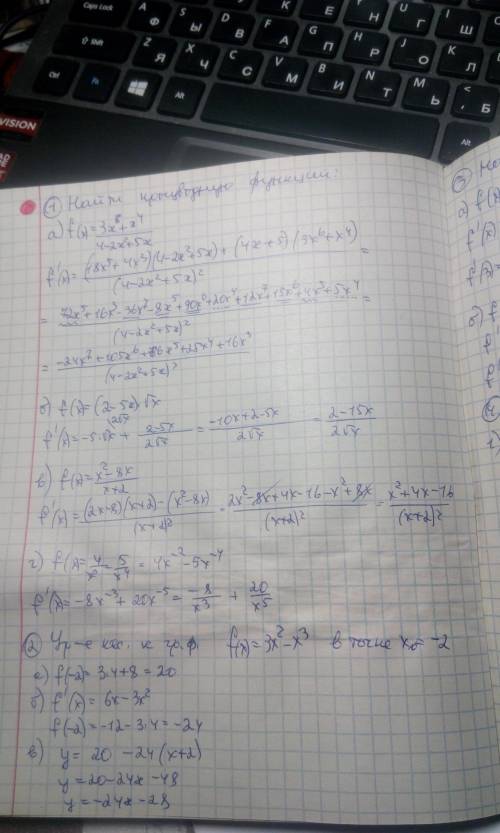 Caps Lock
Shift
Ctrl
Fn
Alt
Alt
VISION
① Найти производную функции:
а) f(x)=3x⁶+x⁴/4-2x²+5x
f'(x)=(18x⁵+4x³)(4-2x²+5x)+(4x+5)(3x⁶+x⁴)/(4-2x²+5x)² =
= 72x⁵+16x³-36x⁷-8x⁵+90x⁶+20x⁴+12x⁷+15x⁶+4x⁵+5x⁴/(4-2x²+5x)² =
= -24x⁷+105x⁶+86x⁵+25x⁴+16x³/(4-2x²+5x)²
б) f(x)=(2-5x)√x
f'(x)=-5·√x+ 2-5x/2√x = -10x+2-5x/2√x = 2-15x/2√x
в) f(x)=x²-8x/x+2
f'(x)=(2x+8)(x+2)-(x²-8x)/(x+2)² = 2x²-8x+4x-16-x²+8x/(x+2)² = x²+4x-16/(x+2)²
г) f(x)=4/x²-5/x⁴ = 4x⁻²-5x⁻⁴
f'(x)=-8x⁻³+20x⁻⁵=-8/x³ + 20/x⁵
② Ур-е кас. к гр. ф. f(x)=3x²-x³ в точке x₀=-2
а) f(-2)=3·4+8=20
б) f'(x)=6x-3x²
f(-2)=-12-3·4=-24
в) y=20-24(x+2)
y=20-24x-48
y=-24x-28
③
а) f(x)
f'(x)
f'(x)=
б) f
f'
f'
④